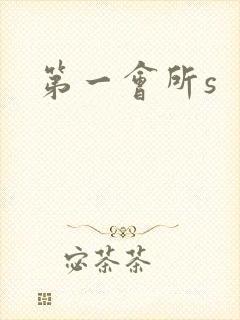 第一會所s
宓茶茶